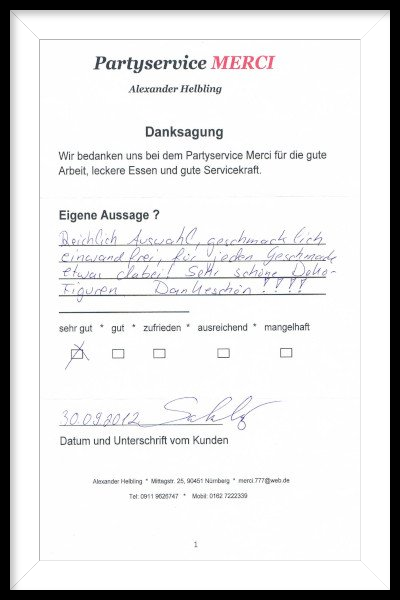 Partyservice MERCI
Alexander Helbling
Danksagung
Wir bedanken uns bei dem Partyservice Merci für die gute
Arbeit, leckere Essen und gute Servicekraft.
Eigene Aussage ?
Reichlich Auswahl, geschmacklich
einwandfrei, für jeden Geschmack
etwas dabei! Sehr schöne Deko-
Figuren Dankeschön !!!!
sehr gut * gut * zufrieden * ausreichend * mangelhaft
30.09.2012
Datum und Unterschrift vom Kunden
Alexander Helbling * Mittagstr. 25, 90451 Nürnberg * merci.777@web.de
Tel: 0911 9626747 * Mobil: 0162 7222339
1